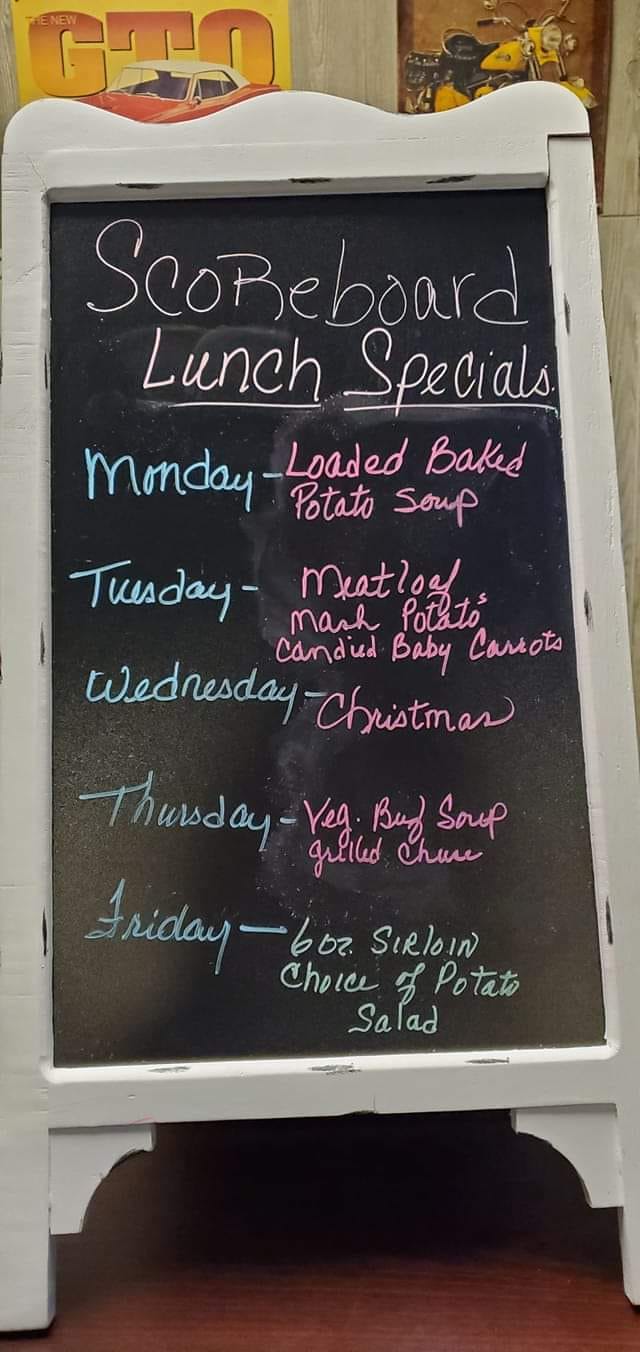 THE NEW
GTO
Scoreboard
Lunch Specials.
Monday - Loaded Baked
Potato Soup
Tuesday - Meatloaf
mash Potato's
Candied Baby Carrots
Wednesday - Christmas
Thursday - Veg. Beef Soup
grilled Cheese
Friday - 6 oz. Sirloin
Choice of Potato
Salad